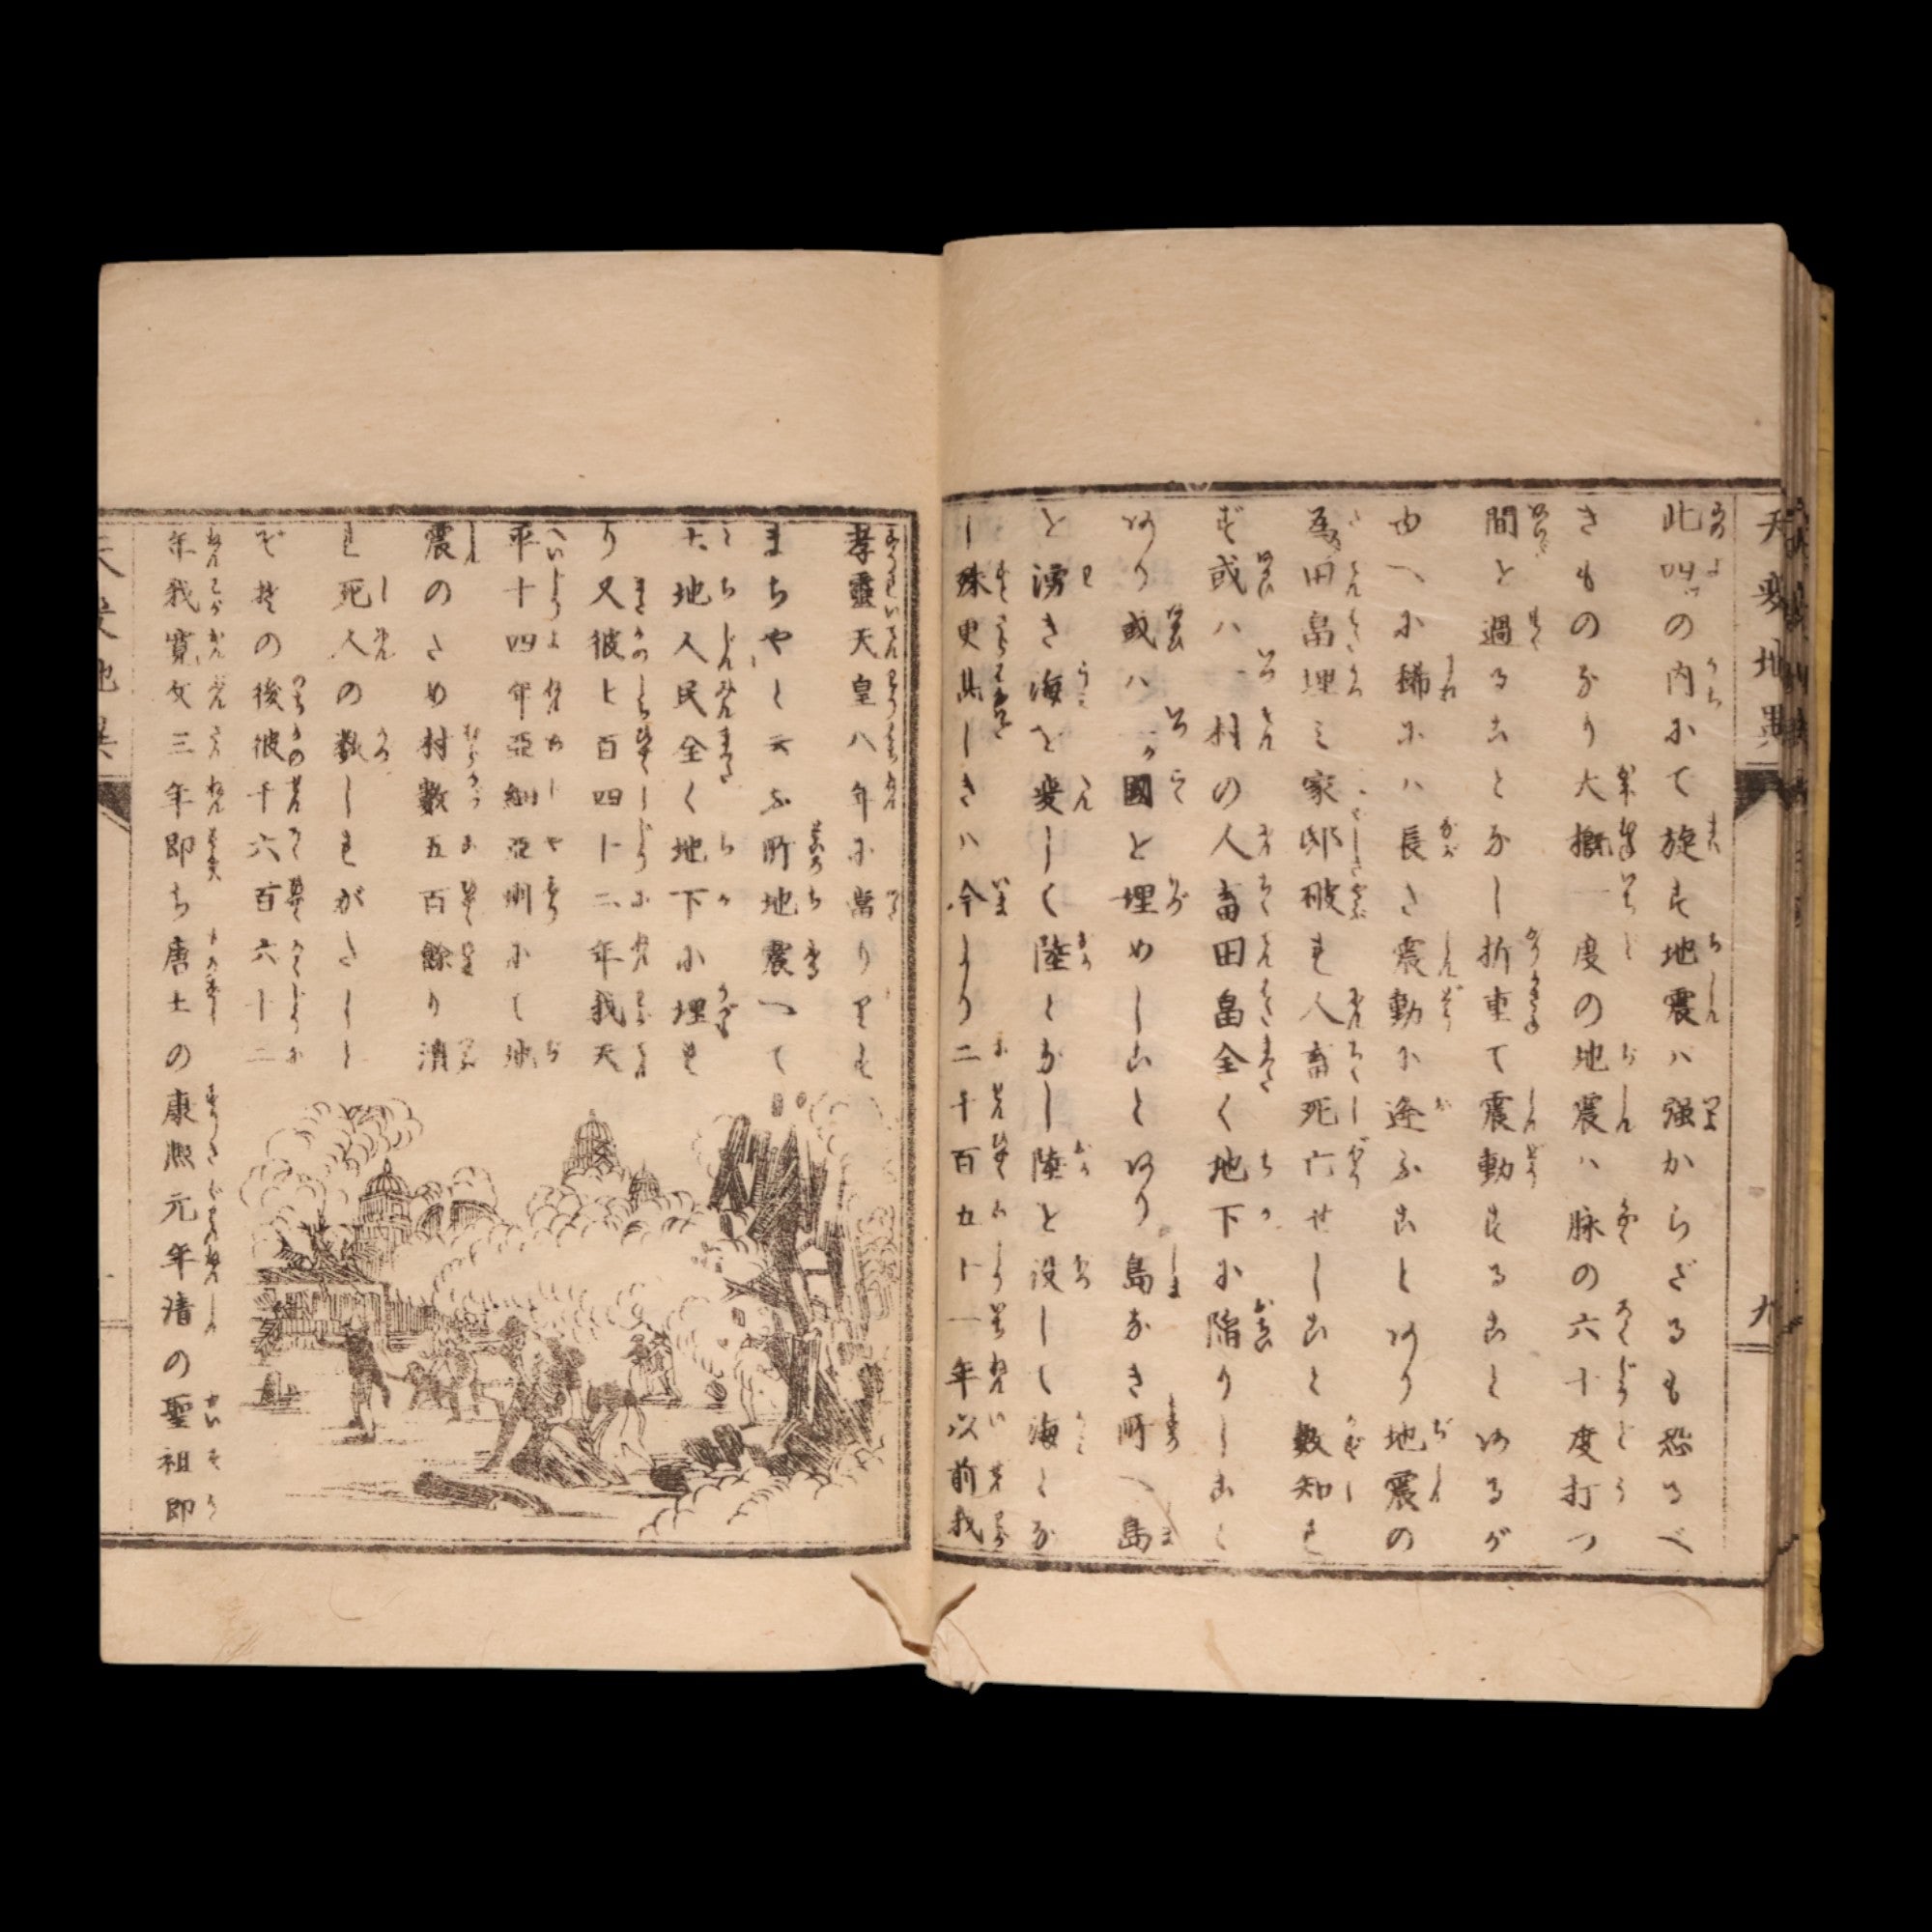 天變地異
九
此四ツの内にて旋も地震ハ强からざるも恐るべ
きものなり大概一度の地震ハ脉の六十度打つ
間を過ることなし折重て震動することあるが
由へに稀にハ長き震動に逢ふことあり地震の
為田畠埋ミ家邸破れ人畜死亡せしこと數知れ
ず或ハ一村の人畜田畠全く地下に陥りしこと
あり或ハ一ヶ國を埋めしことあり島なき所へ島
を湧き海を変じて陸となし陸を没して海とな
し殊更甚しきハ今より二千百五十一年以前我
孝靈天皇八年に當りりも
まちやと云ふ所地震して
土地人民全く地下に埋れ
り又彼七百四十二年我天
平十四年亞細亞洲にて地
震のため村數五百餘り潰
れ死人の數しれがたしと
ぞ其の後彼千六百六十二
年我寛文三年即ち唐土の康熙元年清の聖祖即